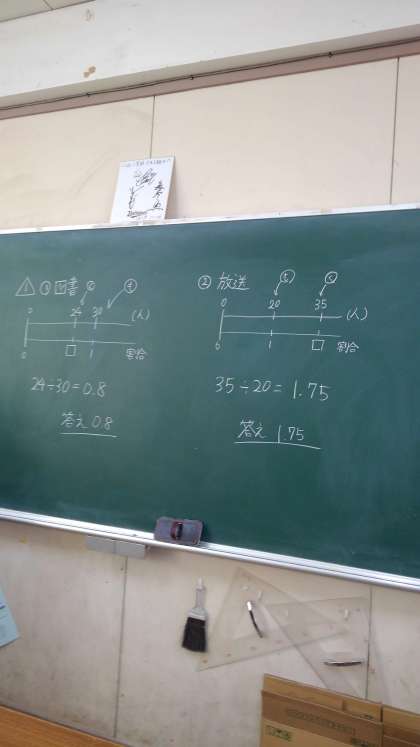 △1 ① 図書 く も
0 24 30 (人)
0 □ 1 割合
24÷30=0.8
答え 0.8
② 放送 も く
0 20 35 (人)
0 1 □ 割合
35÷20=1.75
答え 1.75